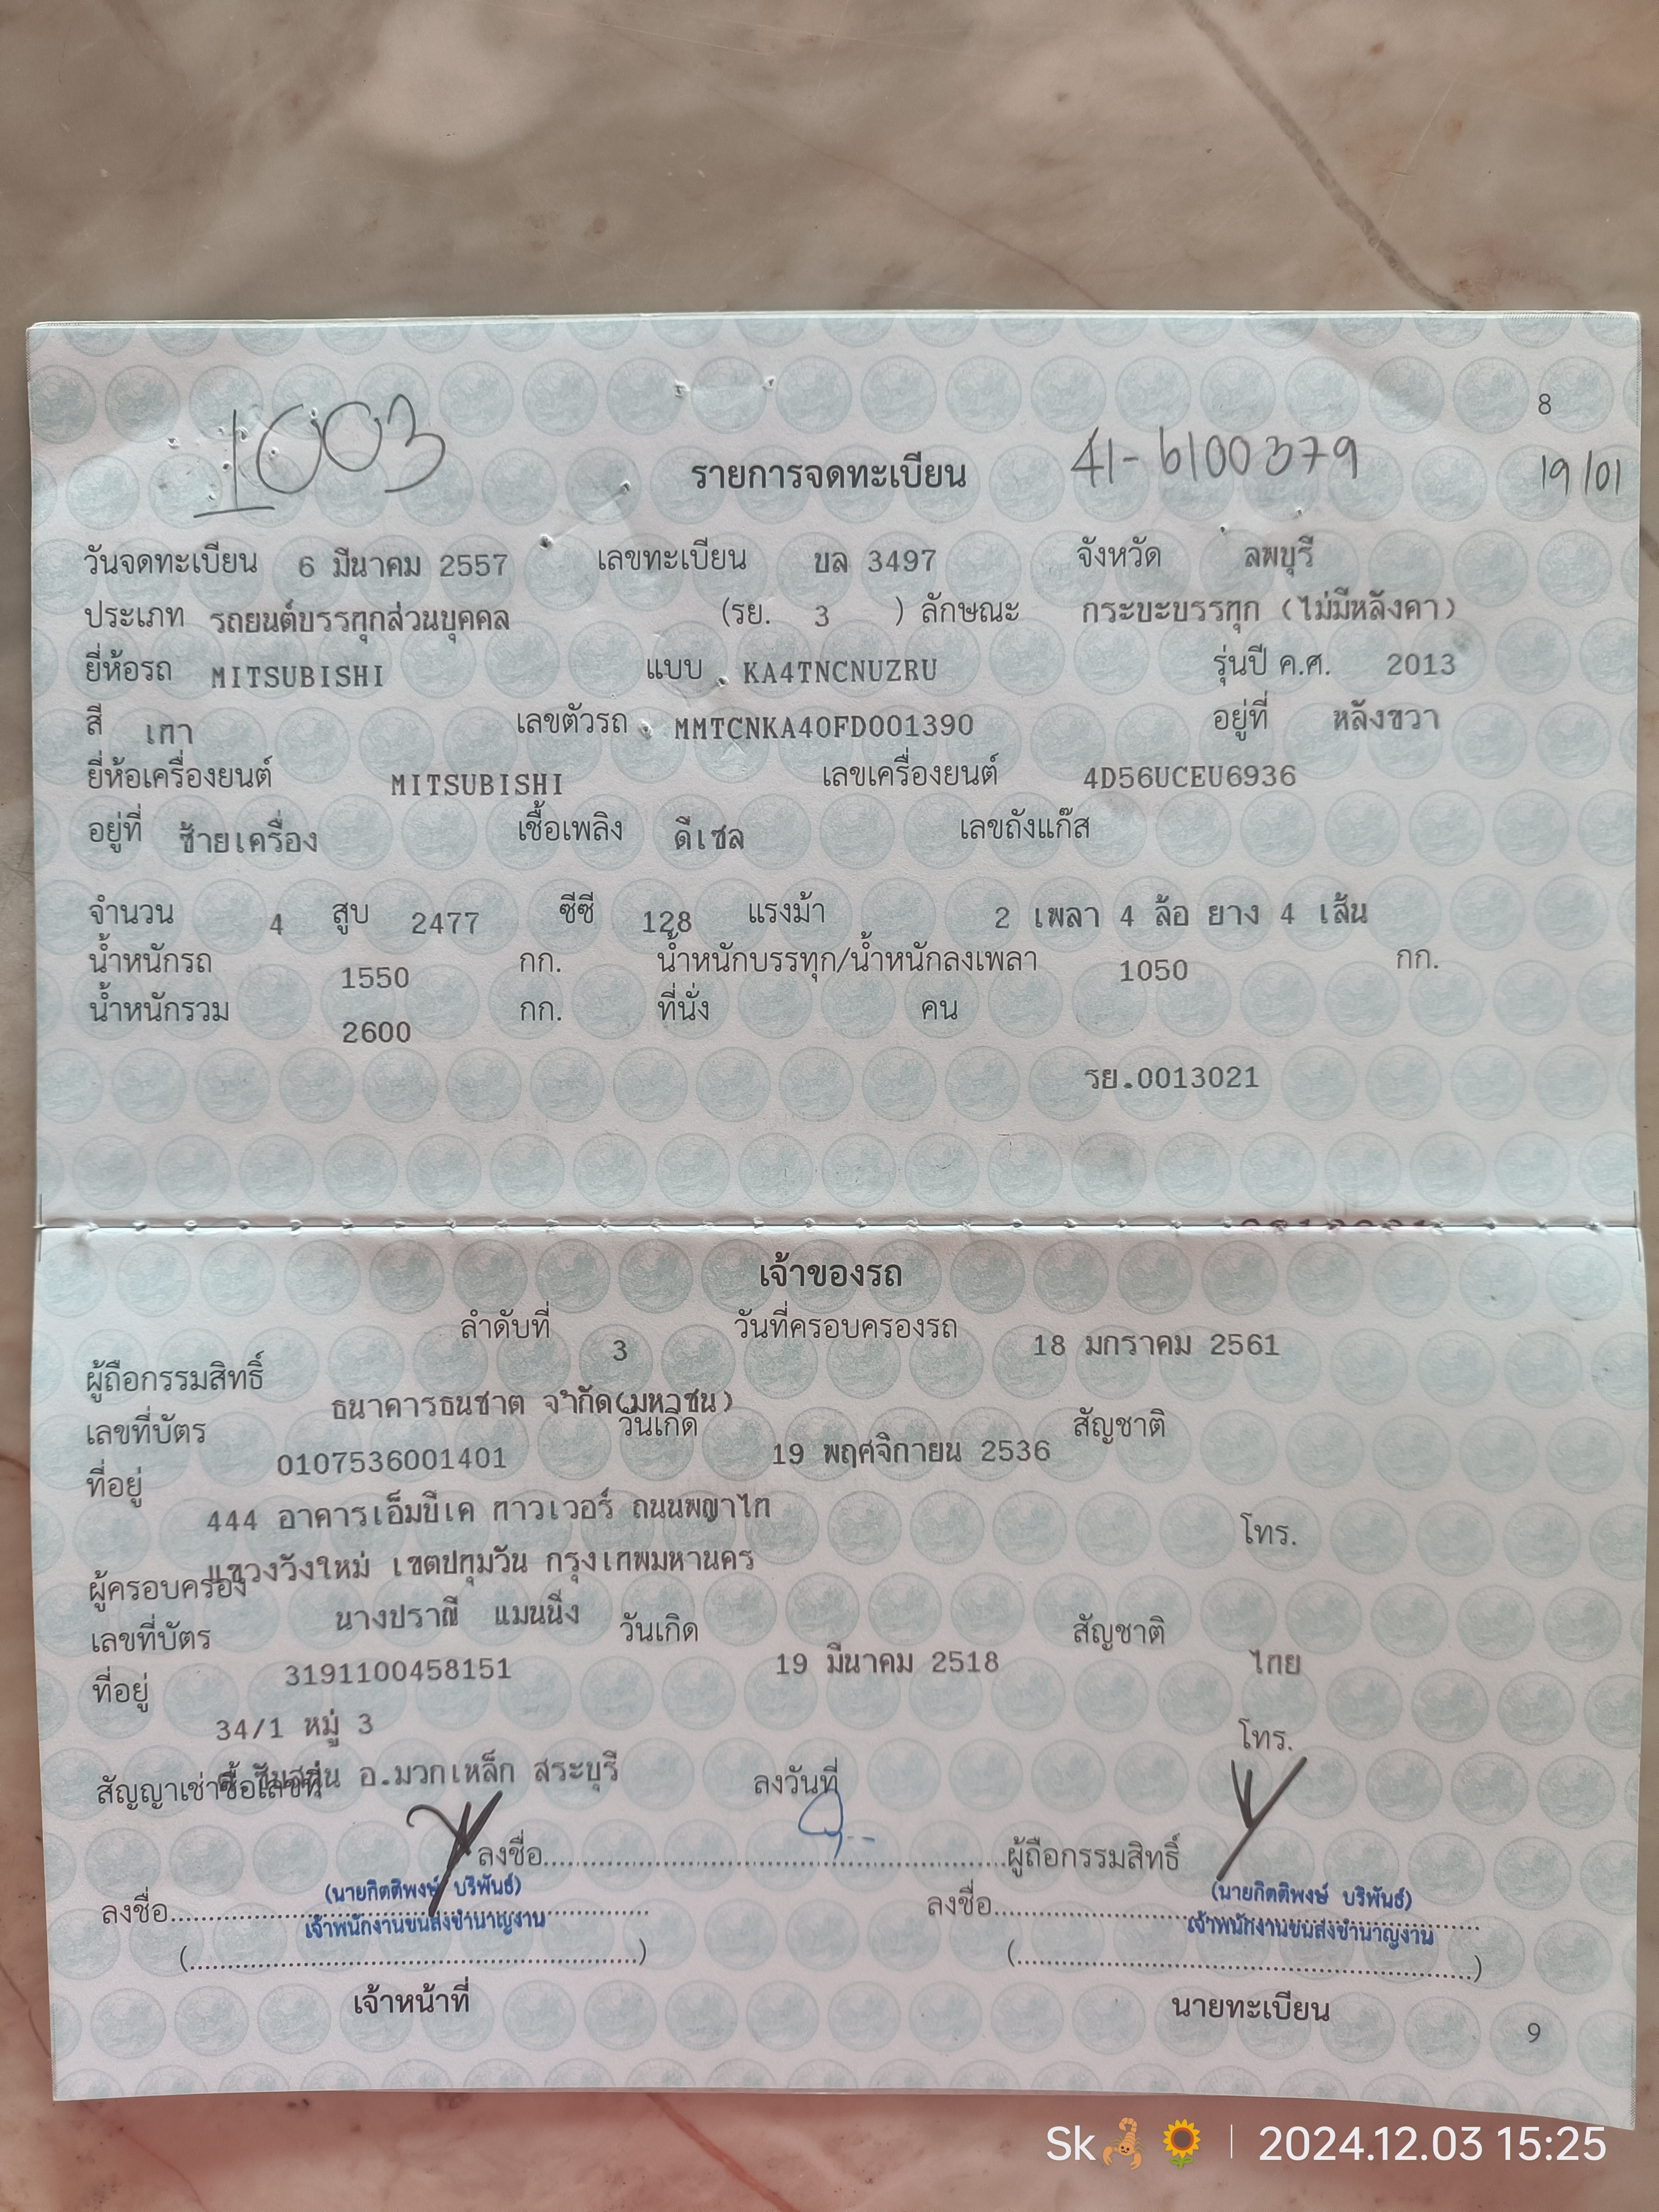 8
1003
รายการจดทะเบียน 41-6100379 19/01
วันจดทะเบียน 6 มีนาคม 2557 เลขทะเบียน บล 3497 จังหวัด ลพบุรี
ประเภท รถยนต์บรรทุกส่วนบุคคล (รย. 3 ) ลักษณะ กระบะบรรทุก (ไม่มีหลังคา)
ยี่ห้อรถ MITSUBISHI แบบ KA4TNCNUZRU รุ่นปี ค.ศ. 2013
สี เทา เลขตัวรถ MMTCNKA40FD001390 อยู่ที่ หลังขวา
ยี่ห้อเครื่องยนต์ MITSUBISHI เลขเครื่องยนต์ 4D56UCEU6936
อยู่ที่ ซ้ายเครื่อง เชื้อเพลิง ดีเซล เลขถังแก๊ส
จำนวน 4 สูบ 2477 ซีซี 128 แรงม้า 2 เพลา 4 ล้อ ยาง 4 เส้น
น้ำหนักรถ 1550 กก. น้ำหนักบรรทุก/น้ำหนักลงเพลา 1050 กก.
น้ำหนักรวม 2600 กก. ที่นั่ง คน
รย.0013021
เจ้าของรถ
ลำดับที่ 3 วันที่ครอบครองรถ 18 มกราคม 2561
ผู้ถือกรรมสิทธิ์ ธนาคารธนชาต จำกัด(มหาชน)
เลขที่บัตร 0107536001401 วันเกิด 19 พฤศจิกายน 2536 สัญชาติ
ที่อยู่ 444 อาคารเอ็มบีเค ทาวเวอร์ ถนนพญาไท โทร.
แขวงวังใหม่ เขตปทุมวัน กรุงเทพมหานคร
ผู้ครอบครอง นางปราณี แมนนิ่ง
เลขที่บัตร 3191100458151 วันเกิด 19 มีนาคม 2518 สัญชาติ ไทย
ที่อยู่ 34/1 หมู่ 3 โทร.
อ.มวกเหล็ก สระบุรี
สัญญาเช่าซื้อเลขที่ ลงวันที่
ลงชื่อ ผู้ถือกรรมสิทธิ์
(นายกิตติพงษ์ บริพันธ์) (นายกิตติพงษ์ บริพันธ์)
ลงชื่อ เจ้าพนักงานขนส่งชำนาญงาน ลงชื่อ เจ้าพนักงานขนส่งชำนาญงาน
(....................) (....................)
เจ้าหน้าที่ นายทะเบียน
9
Sk🦂🌻 | 2024.12.03 15:25